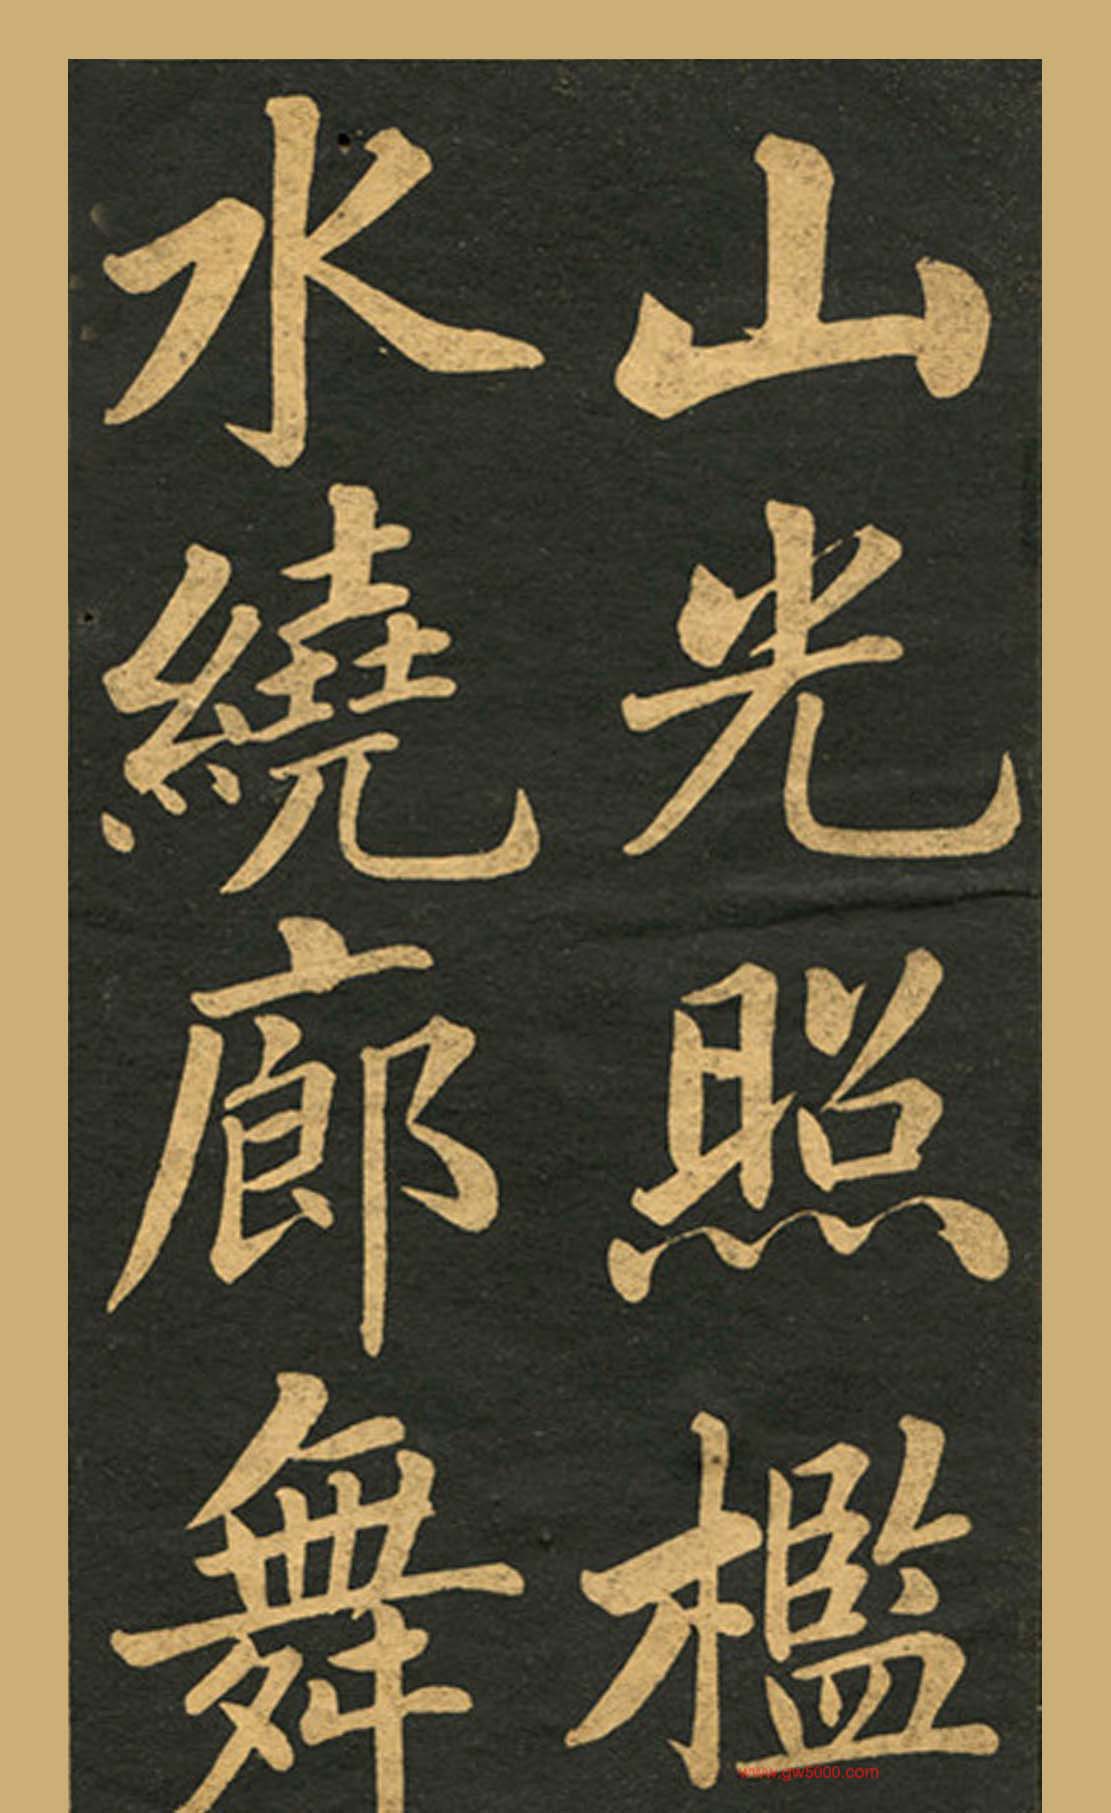 山光照檻
水繞廊舞
www.gw5000.com